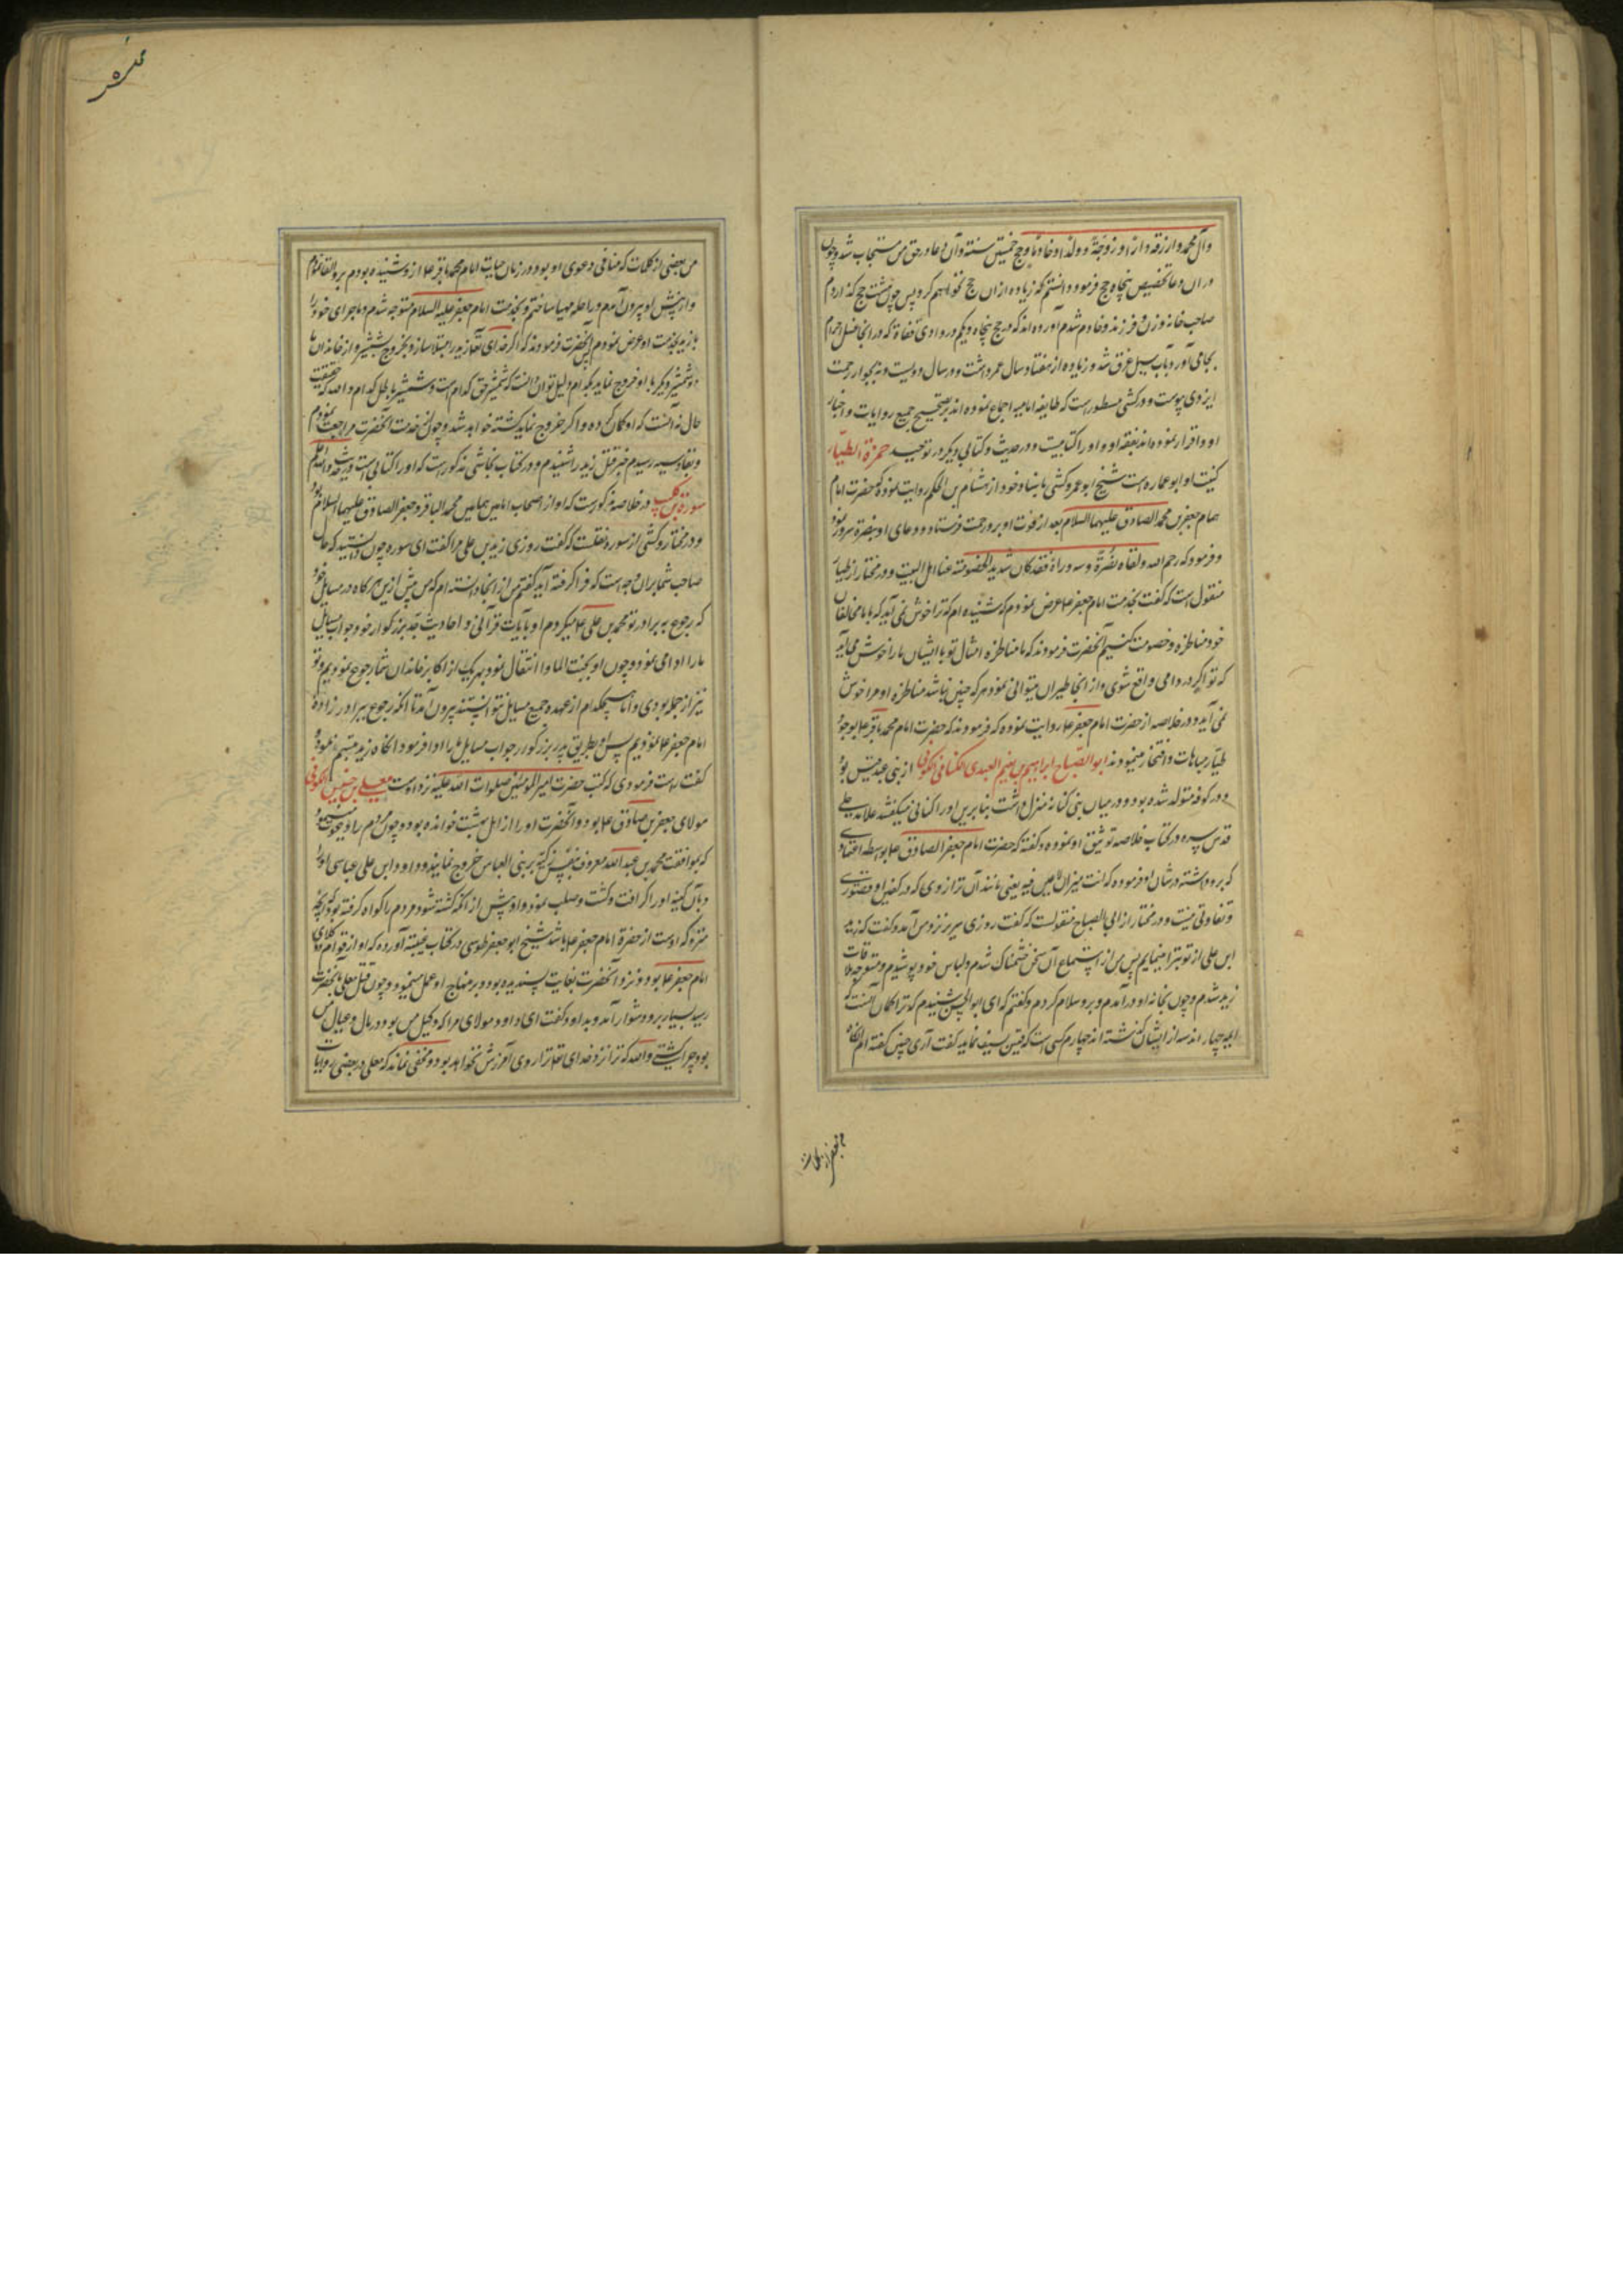 وآل محمد وارزقه دارا و زوجة وولدا وخادما وحج خمسین سنة وآن دعا در حق من مستجاب شد و چون
در آن دعا تخصیص پنجاه حج فرمود دانستم که زیاده از آن حج نخواهم کرد پس چون حج گذاردم
صاحب خانه و زن و فرزند و خادم شدم آورده اند که در حج پنجاه و یکم در وادی قناة که در آنجا غسل احرام
بجا می آورد بآب سیل غرق شد و زیاده از هفتاد سال عمر داشت و در سال دویست و نه بجوار رحمت
ایزدی پیوست و در کشی مسطور است که طایفه امامیه اجماع نموده اند بر تصحیح جمیع روایات و اخبار
او و اقرار نموده اند بفقه او و او را کتابیست در حدیث و کتابی دیگر در توحید حمزة الطیار
کنیت او ابو عماره است شیخ ابو عمرو کشی باسناد خود از هشام بن الحکم روایت نموده که حضرت امام
همام جعفر بن محمد الصادق علیهما السلام بعد از فوت او برو رحمت فرستاد و دعای او بنضرة و سرور نمود
و فرمود که رحمه الله ولقاه نضرة و سرورا فقد کان شدید الخصومة عنا اهل البیت و در مختار از طیار
منقول است که گفت بخدمت امام جعفر ع عرض نمودم که شنیده ام که ترا خوش نمی آید که با مخالفان
خود مناظره و خصومت کنیم آنحضرت فرمودند که مناظره امثال تو با ایشان ما را خوش می آید
که تو اگر در دامی واقع شوی از آنجا طیران میتوانی نمود و هر که چنین نباشد مناظره او مرا خوش
نمی آید و در خلاصه از حضرت امام جعفر ع روایت نموده که فرمودند که حضرت امام محمد باقر ع بوجود
طیار مباهات و افتخار مینمودند ابو الصباح ابراهیم بن نعیم العبدی الکنانی الکوفی از بنی عبد قیس بود
و در کوفه متولد شده بود و در میان بنی کنانه منزل داشت بنابرین او را کنانی میگفتند علامه حلی
قدس سره در کتاب خلاصه توثیق او نموده و گفته که حضرت امام جعفر الصادق ع بواسطه اعتمادی
که برو داشته در شان او فرموده که انت میزان لا عین فیه یعنی مانند آن ترازوی که در کفین او قصوری
و تفاوتی نیست و در مختار از ابی الصباح منقولست که گفت روزی سدیر نزد من آمد و گفت که زید
ابن علی از تو تبرا مینماید پس من از استماع آن سخن خشمناک شدم و لباس خود پوشیدم و متوجه ملاقات
زید شدم و چون بخانه او در آمدم و برو سلام کردم و گفتم که ای ابو الحسین شنیدم که ترا گمان آنست که
ایمه چهار اند سه از ایشان گذشته اند چهارم کسی است که قیام بسیف نماید گفت آری چنین گفته ام آنگاه
من بعضی از کلمات که منافی دعوی او بود و در زمان حیات امام محمد باقر ع ازو شنیده بودم برو القا نمودم
و از پیش او بیرون آمدم و راحله مهیا ساختم و بخدمت امام جعفر علیه السلام متوجه شدم و ماجرای خود را
با زید بخدمت او عرض نمودم پس آنحضرت فرمودند که اگر خدای تعالی زید را مبتلا سازد و بخروج بشمشیر و از خاندان ما
دو شمشیر دیگر با او خروج نماید بکدام دلیل توان دانست که شمشیر حق کدام است و شمشیر باطل کدام والله که حقیقت
حال نه آنست که او گمان کرده و اگر خروج نماید کشته خواهد شد و چون از خدمت آنحضرت مراجعت نمودم
و بقادسیه رسیدم خبر قتل زید را شنیدم و در کتاب نجاشی مذکور است که او را کتابی است والله اعلم
سورة بن کلیب در خلاصه مذکور است که او از اصحاب امامین همامین محمد الباقر و جعفر الصادق علیهما السلام بود
و در مختار و کشی از سوره نقلست که گفت روزی زید بن علی مرا گفت ای سوره چون دانستید که حال
صاحب شما بر آن وجه است که فرا گرفته آید گفتم من از آنجا دانسته ام که من پیش ازین هرگاه در مسایل خود
که رجوع به برادر تو محمد بن علی ع میکردم او بآیات قرآنی و احادیث جد بزرگوار خود جواب مسایل
ما را ادا می نمود و چون او بجنت الماوا انتقال نمود بهر یک از اکابر خاندان شما رجوع نمودیم و تو
نیز از جمله بودی و اما هیچکدام از عهده جمیع مسایل نتوانستند بیرون آمد تا آنکه رجوع ببرادر زاده
امام جعفر ع نمودیم پس او بطریق پدر بزرگوار جواب مسایل ما را ادا فرمود آنگاه زید تبسم نمود و
گفت راست فرمودی که کتب حضرت امیر المومنین صلوات الله علیه نزد اوست معلی بن خنیس الکوفی
مولای جعفر بن صادق ع بود و آنحضرت او را از اهل بهشت خوانده بود و چون مردم را دعوت مینمود
که بموافقت محمد بن عبد الله معروف بنفس زکیه بر بنی العباس خروج نمایند داود ابن علی عباسی او را
و بآن کینه او را گرفت و کشت و صلب نمود و او پیش از آنکه کشته شود مردم را گواه گرفته بود که هر چه
متروکه اوست از حضرة امام جعفر ع باشد شیخ ابو جعفر طوسی در کتاب غیبت آورده که او از قوام و وکلای
امام جعفر ع بود و نزد آنحضرت بغایت پسندیده بود و بر منهاج او عمل مینمود و چون قتل معلی بآنحضرت
رسید بسیار برو دشوار آمد و بداود گفت ای داود مولای مرا که وکیل من بود در مال و عیال من
بود چرا کشتی والله که ترا نزد خدای تعالی روی آمرزش نخواهد بود و مخفی نماند که معلی در بعضی روایات